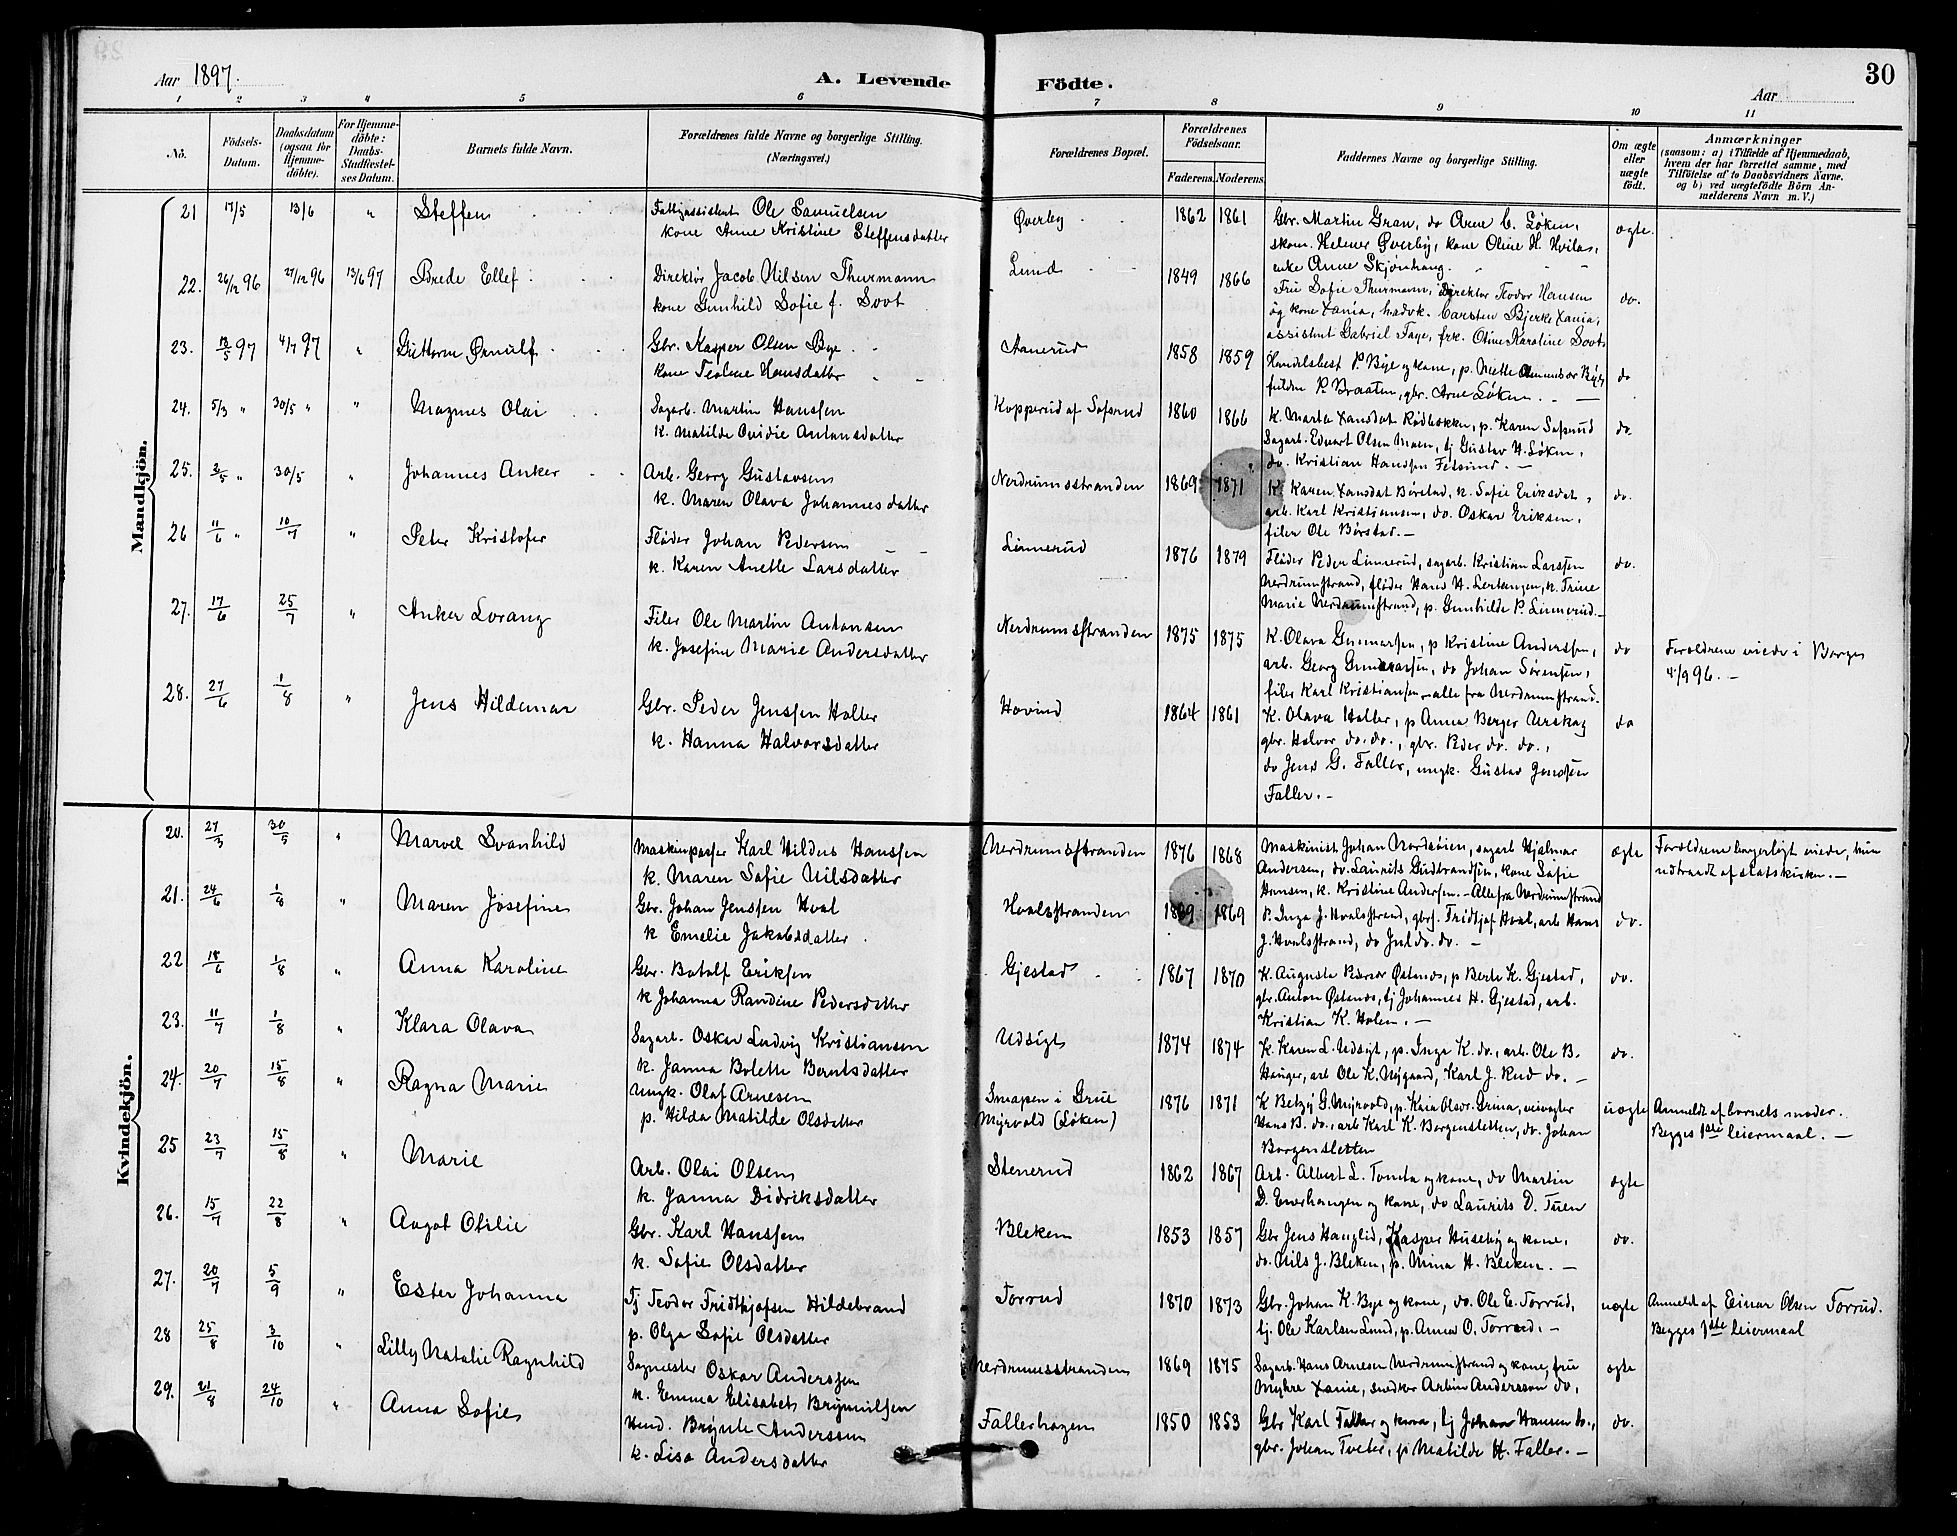 30
Aar 1897.
A. Levende Födte.
Aar
1 2 3 4 5 6 7 8 9 10 11
No.
Födsels-Datum.
Daabsdatum (ogsaa for Hjemmedöbte).
For Hjemmedöbte: Daabs-Stadfæstelses Datum.
Barnets fulde Navn.
Forældrenes fulde Navne og borgerlige Stilling. (Næringsvei.)
Forældrenes Bopæl.
Forældrenes Födselsaar.
Faderens. Moderens.
Faddernes Navne og borgerlige Stilling.
Om ægte eller uægte födt.
Anmærkninger
(saasom: a) i Tilfælde af Hjemmedaab, hvem der har forrettet samme, med Tilföielse af to Daabsvidners Navne. og b) ved uægtefödte Börn Anmelderens Navn m. V.)
Mandkjön.
21 17/5 13/6 " Steffen Ole Samuelsen Øverby 1862 1861 Gbr. Martin Gran, do Arne C. Løken, ægte.
kone Anne Kristine Steffensdatter skom. Helmer Øverby, kone Oline H. Hvilas,
enke Anne Skjønhaug.
22. 26/12 96 27/12 96 13/6 97 Brede Ellef Direktör Jacob Nilsen Thurmann Lund 1849 1866 Fru Sofie Thurmann, Direktör Teodor Hansen do.
kone Gunhild Sofie f. Soot og kone Xania, Carsten Bjerke Xania,
assistent Gabriel Faye, frk. Oline Karoline Soot.
23. 13/5 97 4/7 97 " Guttorm Ørnulf Gbr. Kasper Olsen Bye Aanerud 1858 1859 Handelsbest P. Bye og kone, p. Mette do
kone Teoline Hansdatter P. Braaten, gbr. Arne Løken.
24. 5/3 " 30/5 " " Magnus Olai Sagarb. Martin Hanssen Kopperud af Sofsrud 1860 1866 K. Marte Xansdat p. Karen do.
k. Matilde Ovidie Antonsdatter Sagarb. Edvart Olsen Moen, tj Gustav H. Løken,
do. Kristian Hanssen Fetsund. —
25. 3/5 " 30/5 " Johannes Anker Arb. Georg Gustavsen Nerdrumsstranden 1869 1871 K. Karen Xansdat Børstad, k. Sofie Eriksdat, do.
k. Maren Olava Johannesdatter arb. Karl Kristiansen, do. Oskar Eriksen,
filer Ole Børstad. —
26 11/6 " 10/7 " Peter Kristofer Fløder Johan Pedersen Linnerud 1876 1879 Fløder Peder Linnerud, sagarb. Kristian Larssen do.
k. Karen Anette Larsdatter Nerdrumstrand, fløder Hans H. Lertangen, k. Trine
Marie Nerdrumstrand, p. Gunhilde P. Linnerud. —
27. 17/6 25/7 " Anker Lorang Filer Ole Martin Antonsen Nerdrumsstranden 1875 1875 K. Olava Gunnarsen, p Kristine Anderssen, do Forældrene viede i Borge
k. Josefine Marie Andersdatter arb. Georg Gunnarsen, do Johan Sørensen, 4/9 96. —
filer Karl Kristiansen alle fra Nerdrumstrand.
28. 27/6 1/8 " Jens Hildemar Gbr. Peder Jenssen Holter Hovind 1864 1861 K. Olava Holter, p Anna Berger Urskog do
k. Hanna Halvorsdatter gbr. Halvor do. do., gbr. Peder do. do.,
do Jens G. Faller, ungk. Gustav Jenssen
Faller. —
Kvindekjön.
20. 27/3 30/5 " Marvel Svanhild Maskinpasser Karl Hildus Hanssen Nerdrumsstranden 1876 1868 Maskinist Johan Nordsöien, sagarb Hjalmar ægte Forældrene borgerligt viede, hun
k. Maren Sofie Nilsdatter Andersen, do. Laurits Gudbrandsen, kone Sofie udtraadt af statskirken. —
Hansen, k. Kristine Andersen. — Alle fra Nerdrumstrand
21. 24/6 1/8 " Maren Josefine Gbr. Johan Jenssen Hval Hvalsstranden 1869 P. Inga J. Hvalsstrand, gbrs. Fridtjof Hval, arb Hans do.
k Emelie Jakobsdatter. J. Hvalsstrand, do Jul do. do. —
22 18/6 1/8 " Anna Karoline Gbr. Botolf Eriksen Gjestad 1867 1870 K. Auguste Østenos, p Berte K. Gjestad, do.
k Johanna Randine Pedersdatter gbr. Anton Østenos, tj Johannes H. Gjestad, arb.
Kristian K. Holen. —
23. 11/7 1/8 " Klara Olava Sagarb. Oskar Ludvig Kristiansen Udsigt 1874 1874 K. Karen L. Udsigt, p. Inga K. do., arb. Ole B. do.
k. Janna Bolette Berntsdatter Hauger, arb Ole K. Nygaard, Karl J. Rud do. —
24. 20/7 15/8 " Ragna Marie Ungk. Olaf Arnesen Smapen i Grue 1876 1871 K Betzy G. Myrvold, p. Kaia Olsdr. Grina, Anmeldt af barnets moder.
p. Hilda Matilde Olsdatter Myrvold (Løken) uægte Hans B. do., arb Karl K. Borgensletten, do. Johan Begges 1ste leiermaal. —
Borgensletten
25 23/7 15/8 " Marie Arb. Olai Olsen Stenerud 1862 1867 Arb. Albert L. Tomta og kone, do Martin ægte
k. Janna Didriksdatter D. Enerhaugen og kone, do Laurits D. Tuen
26. 15/7 22/8 " Aagot Otilie Gbr. Karl Hanssen Bleken 1853 1857 Gbr Jens Hauglid, Kasper Huseby og kone, do.
k. Sofie Olsdatter do. Nils J. Bleken, p. Nina H. Bleken. —
27. 20/7 5/9 " Ester Johanna Tj Teodor Fridthjofsen Hildebrand Torrud 1870 1873 Gbr. Johan K. Bye og kone, do. Ole E. Torrud, uægte Anmeldt af Einar Olsen Torrud.
p. Olga Sofie Olsdatter tj. Ole Karlsen Lund, p. Anna O. Torrud. — Begges 1ste leiermaal
28 25/8 3/10 " Lilly Natalie Ragnhild Sagmester Oskar Anderssen Nerdrumsstranden 1869 1875 Sagarb. Hans Arnesen Nerdrumstrand og kone, fru ægte
k. Emma Elisabet Brynnilsen Myhre Xania, snedker Anderssen do.
29. 21/8 24/10 " Anna Sofie Brynte Anderssen Fallerhagen 1850 1853 Gbr Karl Faller og kone, tj Johan Hansen do., do.
k. Lisa Andersdatter gbr. Johan Tveter, p Matilde H. Faller. —